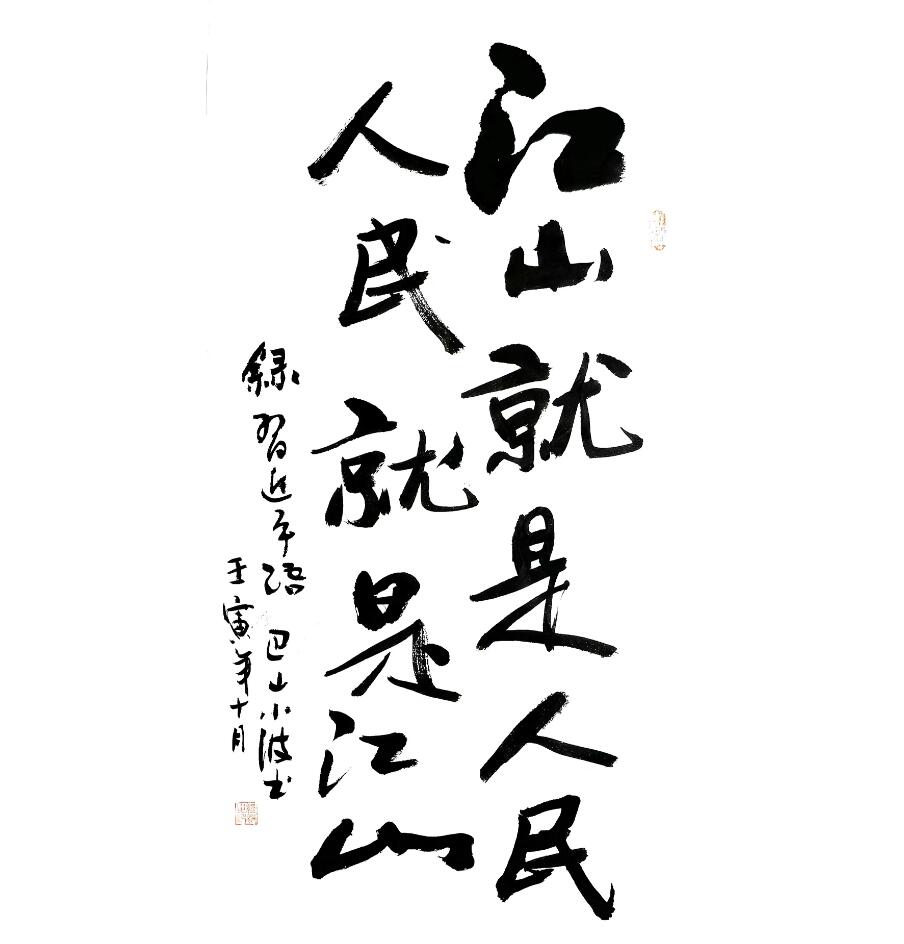 江山就是人民
人民就是江山
録習近平語 巴山小波书
壬寅年十月